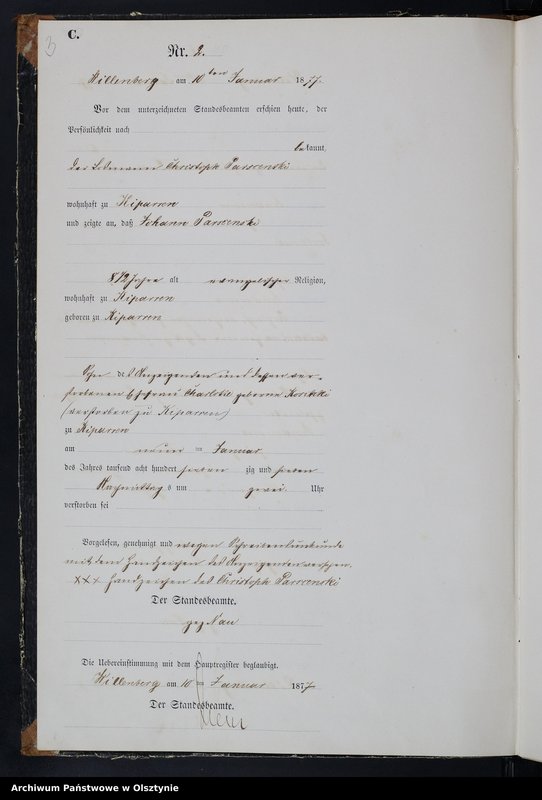 C.
3
Nr. 2.
Willenberg am 10ten Januar 1877.
Vor dem unterzeichneten Standesbeamten erschien heute, der
Persönlichkeit nach
bekannt,
der Christoph
wohnhaft zu Kiparren
und zeigte an, daß Johann
8 1/2 Jahre alt evangelischer Religion,
wohnhaft zu Kiparren
geboren zu Kiparren
Sohn des Anzeigenden und dessen ver-
storbenen Ehefrau Charlotte geborene
(verstorben zu Kiparren)
zu Kiparren
am neun ten Januar
des Jahres tausend acht hundert sieben zig und sieben
Nachmittag s um zwei Uhr
verstorben sei
Vorgelesen, genehmigt und wegen Schreibensunkunde
mit dem Handzeichen des Anzeigenden versehen.
XXX Handzeichen des Christoph
Der Standesbeamte.
gez Nau
Die Uebereinstimmung mit dem Hauptregister beglaubigt.
Willenberg am 10ten Januar 1877
Der Standesbeamte.
Archiwum Państwowe w Olsztynie